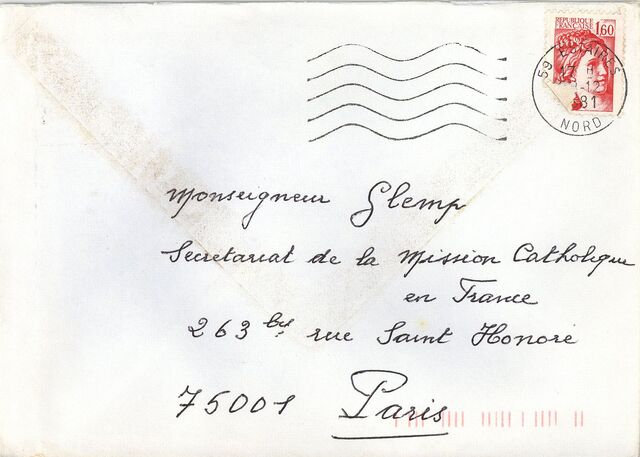 REPUBLIQUE FRANÇAISE 1,60
59 ESTAIRES
17 H
-12
1981
NORD
Monseigneur Glemp
Secretariat de la Mission Catholique
en France
263 bis rue Saint Honoré
75001 Paris